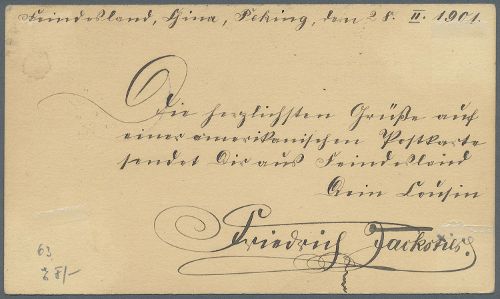 Feindesland, China, Peking, den 28. II. 1901.
Die herzlichsten Grüße auf
einer amerikanischen Postkarte
sendet Dir aus Feindesland
Dein Cousin
Friedrich
63